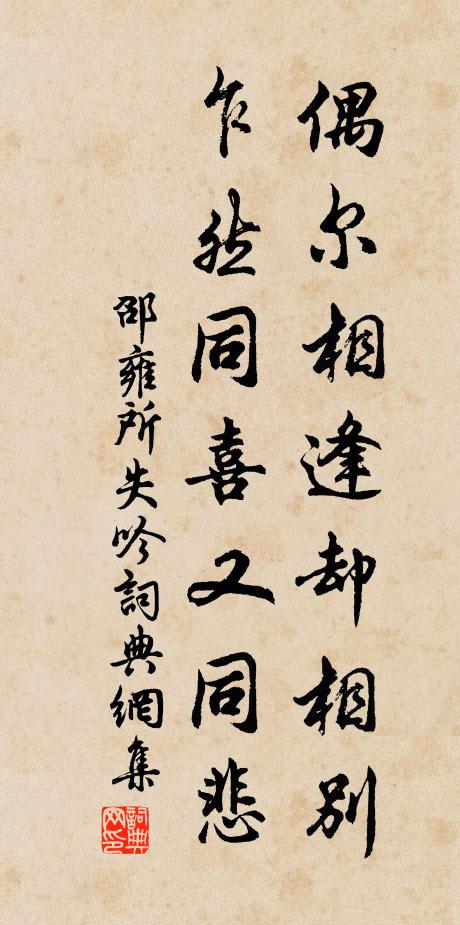 偶尔相逢却相别
乍然同喜又同悲
邵雍所失吟詞典網集
詞典网印